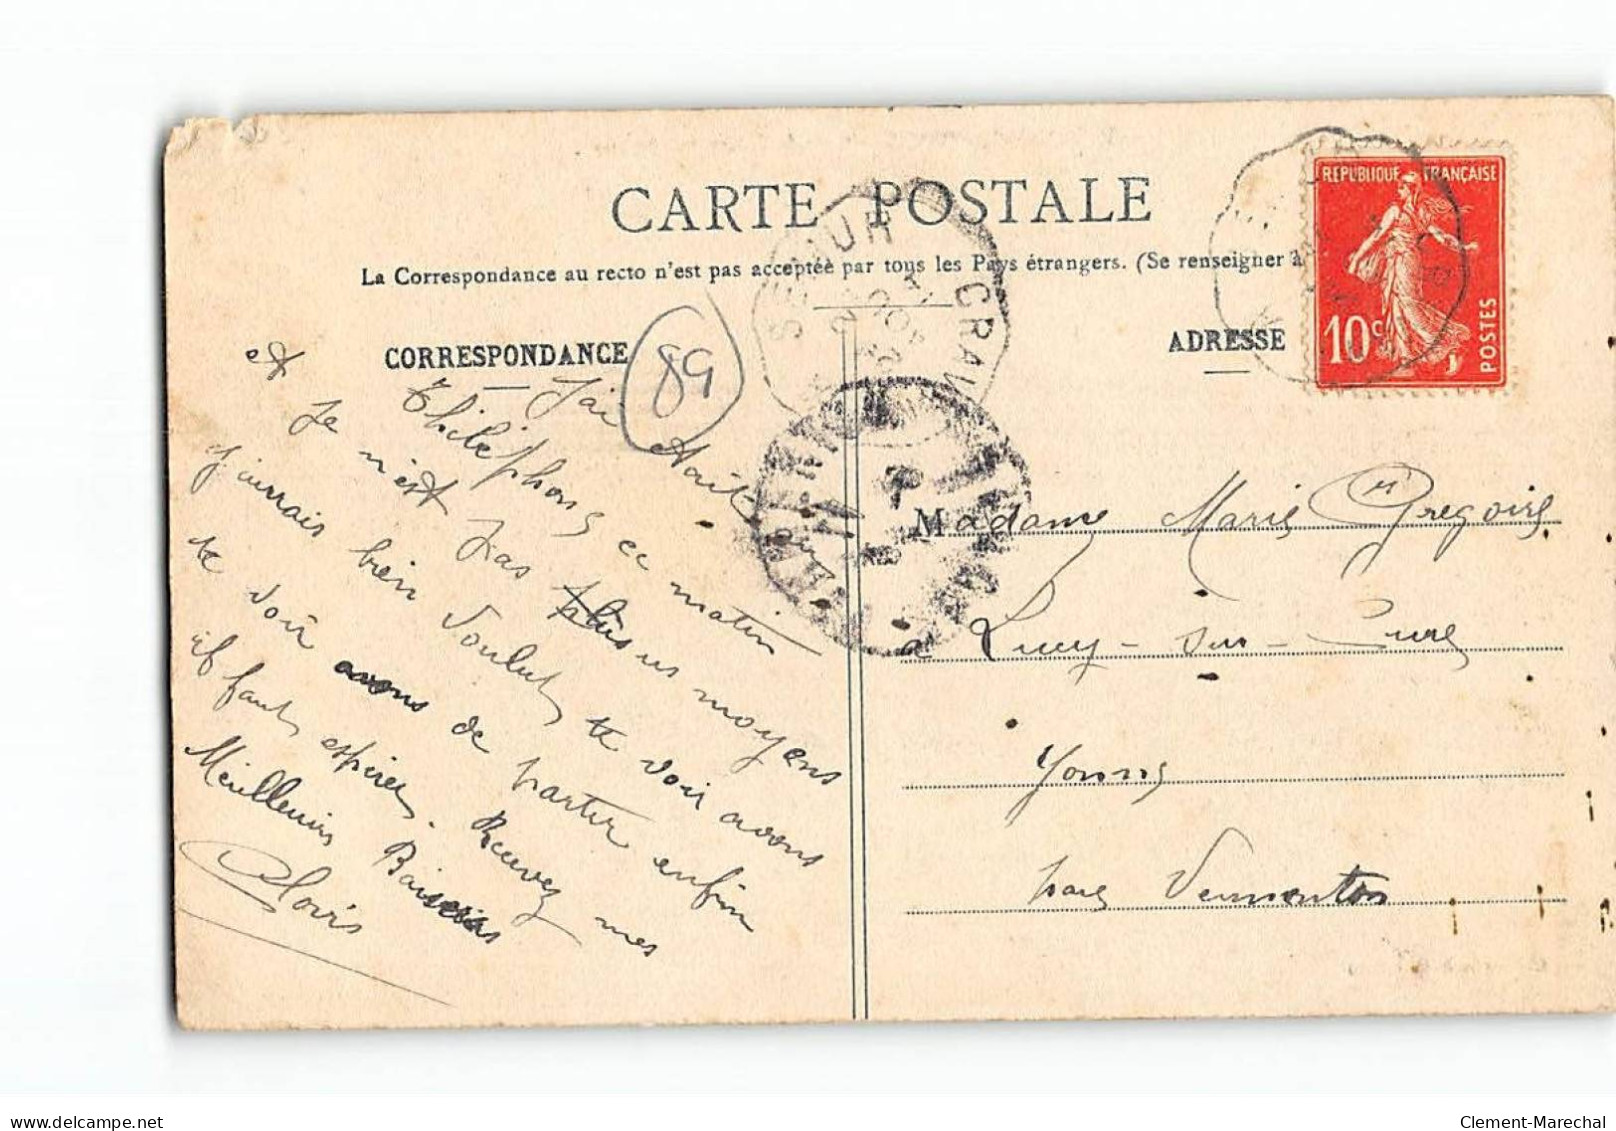 CARTE POSTALE
La Correspondance au recto n'est pas acceptée par tous les Pays étrangers. (Se renseigner à
CORRESPONDANCE
ADRESSE
REPUBLIQUE FRANÇAISE
10c
POSTES
SEMUR
CRAVA
89
J'ai
et
Thiléphons ce matin
Je n'est pas plus us moyens
J'aurrais bien Voulut te voir avons
te voir avons de parter enfin
il faut espérer. Recevez mes
Meilleurs Baisers
Clovis
Madame Marie Gregoire
à Lucy-sur-Cure
Yonne
par Vermenton
Clement-Marechal